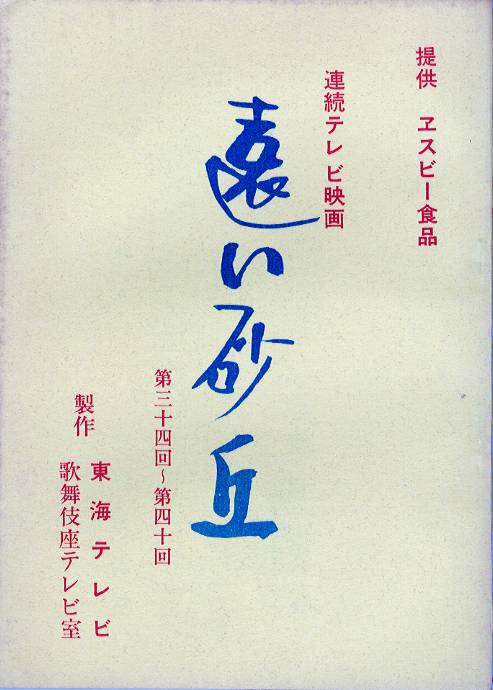 提供 ヱスビー食品
連続テレビ映画
遠い砂丘
第三十四回~第四十回
製作 東海テレビ
歌舞伎座テレビ室